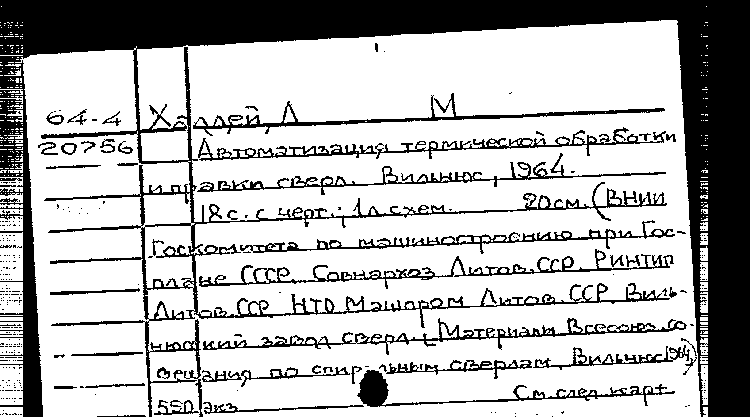 64-4 Халлей, Л М
20756 Автоматизация термической обработки
и правки сверл. Вильнюс, 1964.
18 с. с черт.; 1 л. схем. 20 см. (ВНИИ
Госкомитета по машиностроению при Гос-
плане СССР. Совнархоз Литов. ССР. РИНТИП
Литов. ССР. НТО Машпром Литов. ССР. Виль-
нюский завод сверл. Материалы Всесоюз. со-
вещания по спиральным сверлам, Вильнюс 1964)
550 экз. См. след. карт